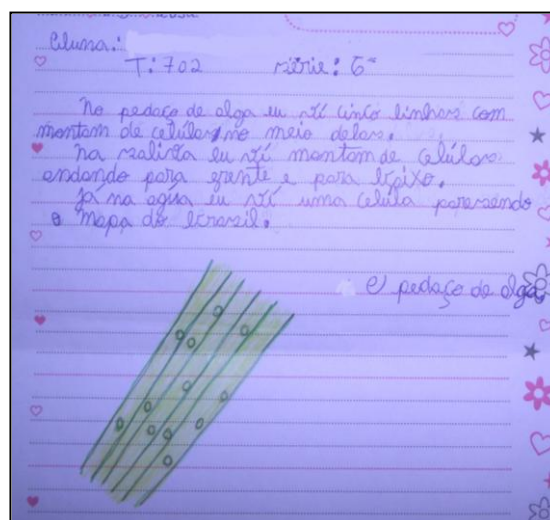 Aluna.:
T: 702 série: 6ª
No pedaço de alga eu ví cinco linhas com
montam de celulas no meio delas.
na salista eu ví montam de celúlas
andando para frente e para baixo.
já na aguá eu ví uma celúla paresendo
o mapa do brasil.
O pedaço de alga